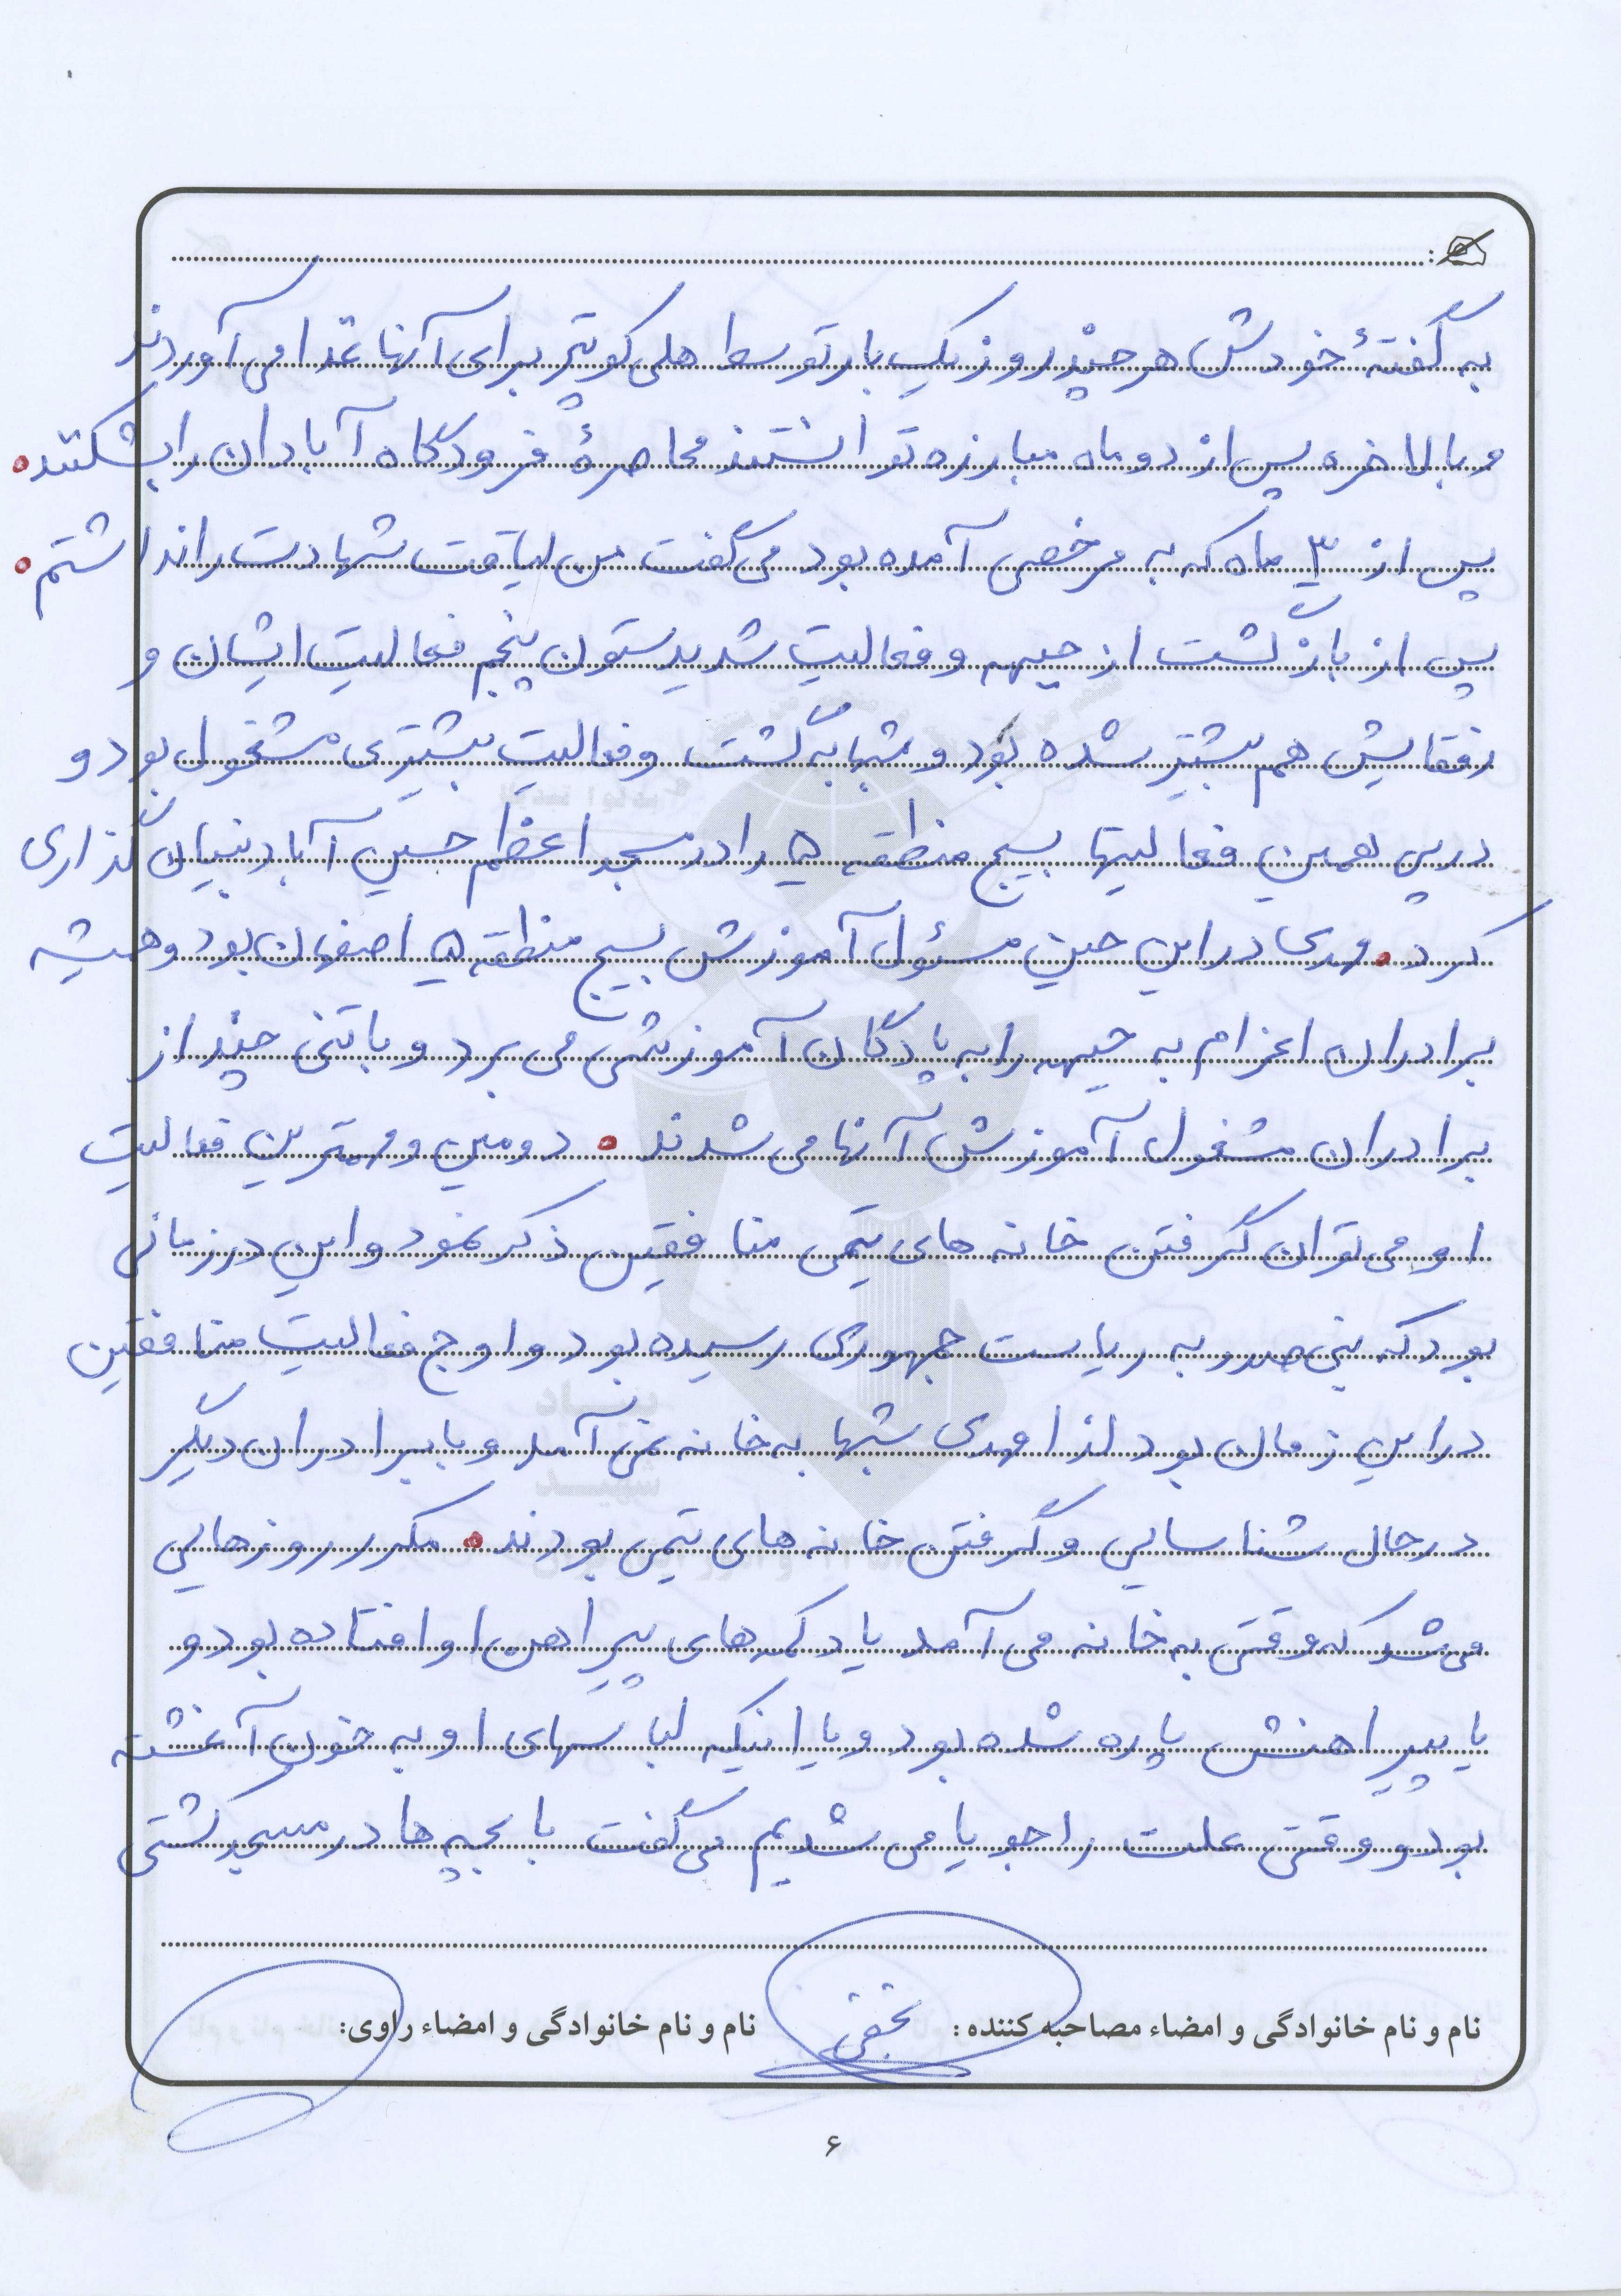 به گفتهٔ خودش هر چند روز یک بار توسط هلی کوپتر برای آنها غذا می آوردند
و بالاخره پس از دو ماه مبارزه توانستند محاصرهٔ فرودگاه آبادان را بشکنند.
پس از ۳ ماه که به مرخصی آمده بود می گفت من لیاقت شهادت را نداشتم.
پس از بازگشت از جبهه و فعالیت شدید ستون پنجم فعالیت ایشان و
رفقایش هم بیشتر شده بود و شبها به گشت و فعالیت بیشتری مشغول بود و
در پی همین فعالیتها بسیج منطقه ۵ را در مسجد اعظم حسین آباد بنیان گذاری
کرد. مهدی در این حین مسئول آموزش بسیج منطقه ۵ اصفهان بود و همیشه
برادران اعزام به جبهه را به پادگان آموزشی می برد و با تنی چند از
برادران مشغول آموزش آنها می شدند. دومین و مهمترین فعالیت
او می توان گرفتن خانه های تیمی منافقین ذکر نمود و این در زمانی
بود که بنی صدر به ریاست جمهوری رسیده بود و اوج فعالیت منافقین
در این زمان بود لذا مهدی شبها به خانه نمی آمد و با برادران دیگر
در حال شناسایی و گرفتن خانه های تیمی بودند. مکرر روزهایی
می شد که وقتی به خانه می آمد یا دکمه های پیراهن او افتاده بود و
یا پیراهنش پاره شده بود و یا اینکه لباسهای او به خون آغشته
بود و وقتی علت را جویا می شدیم می گفت با بچه ها در مسجد کشتی
نام و نام خانوادگی و امضاء مصاحبه کننده: نام و نام خانوادگی و امضاء راوی:
۶